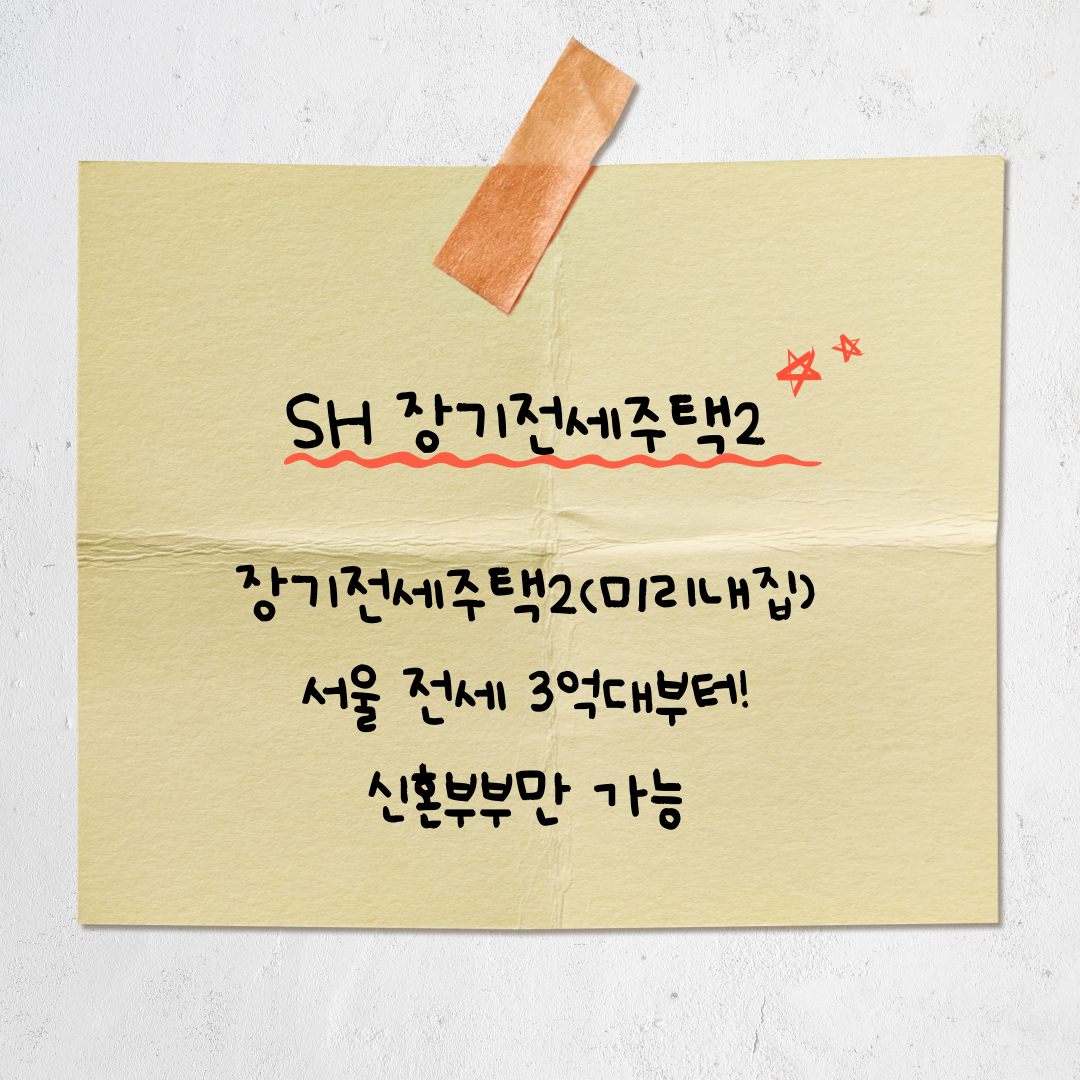 SH 장기전세주택2
장기전세주택2(미리내집)
서울 전세 3억대부터!
신혼부부만 가능